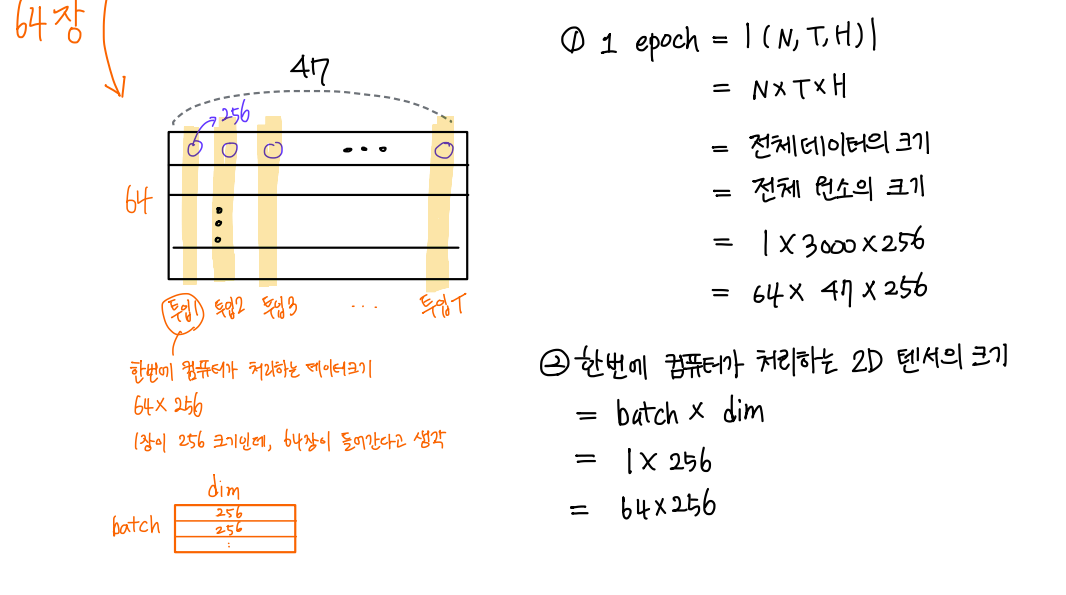 64장
47
256
64
투입1 투입2 투입3 ... 투입T
한번에 컴퓨터가 처리하는 데이터크기
64 × 256
1장이 256 크기인데, 64장이 들어간다고 생각
dim
batch
256
256
:
① 1 epoch = |(N,T,H)|
= N×T×H
= 전체데이터의 크기
= 전체 원소의 크기
= 1 × 3000 × 256
= 64 × 47 × 256
② 한번에 컴퓨터가 처리하는 2D 텐서의 크기
= batch × dim
= 1 × 256
= 64 × 256